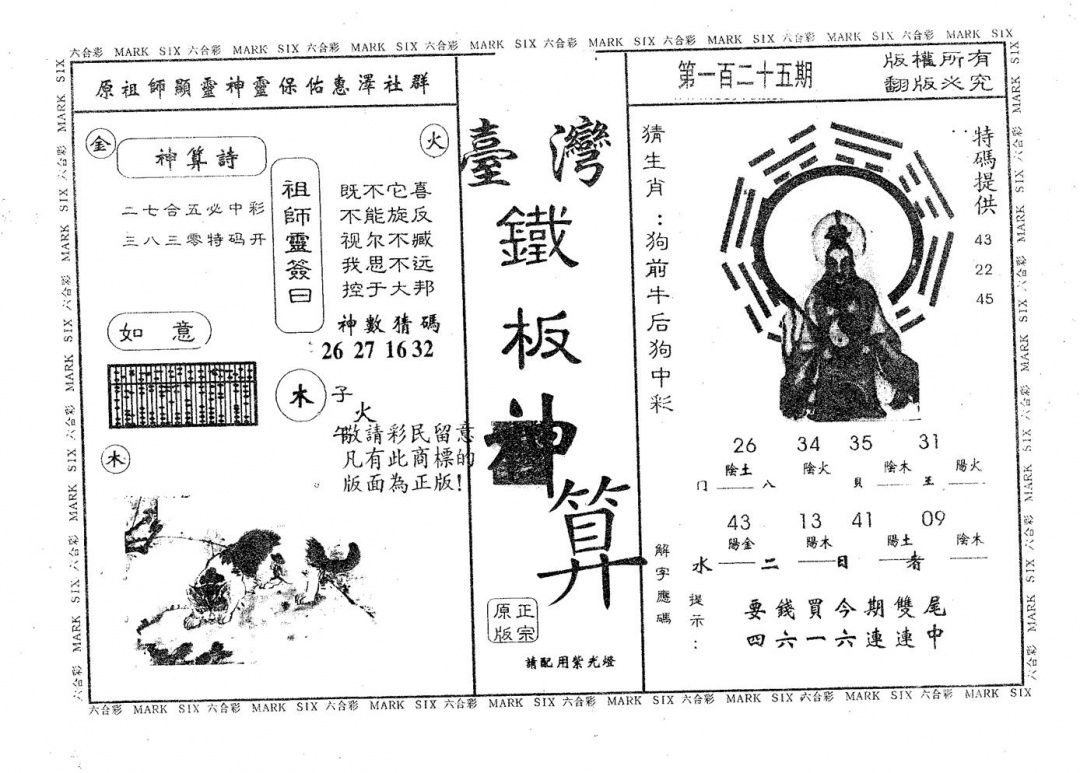 六合彩 MARK SIX 六合彩 MARK SIX 六合彩 MARK SIX 六合彩 MARK SIX 六合彩 MARK SIX 六合彩 MARK SIX 六合彩 MARK SIX 六合彩 MARK SIX
原祖師顯靈神靈保佑惠澤社群
金
火
神算詩
二七合五必中彩
三八三零特码开
祖師靈簽曰
既不它喜
不能旋反
视尔不臧
我思不远
控于大邦
神數猜碼
26 27 16 32
如意
木
子
火
午
敬請彩民留意
凡有此商標的
版面為正版!
木
臺灣
鐵
板
神
算
正宗
原版
請配用紫光燈
第一百二十五期
版權所有
翻版必究
猜生肖：狗前牛后狗中彩
特碼提供
43
22
45
26 34 35 31
陰土 陰火 陰木 陽火
门 八 貝 王
43 13 41 09
陽金 陽木 陽土 陰木
水 二 日 者
解字應碼
提示：
要錢買今期雙尾
四六一六連連中
六合彩 MARK SIX 六合彩 MARK SIX 六合彩 MARK SIX 六合彩 MARK SIX 六合彩 MARK SIX 六合彩 MARK SIX 六合彩 MARK SIX 六合彩 MARK SIX